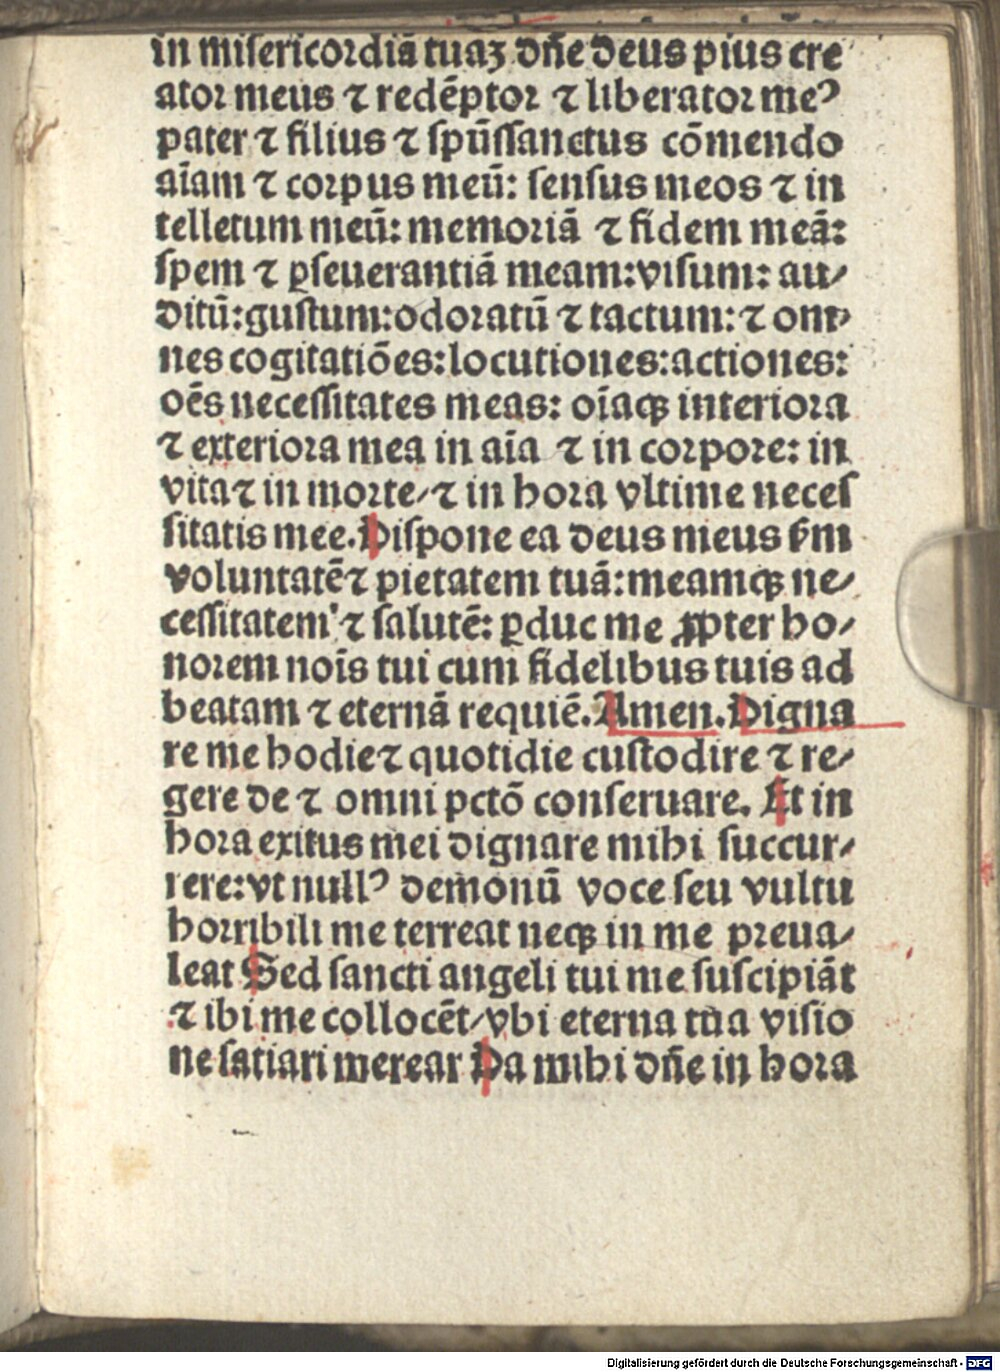 in misericordiā tuaꝫ dn̄e deus pius cre
ator meus ⁊ redēptor ⁊ liberator meꝰ
pater ⁊ filius ⁊ spūssanctus cōmendo
aīam ⁊ corpus meū: sensus meos ⁊ in
tellectum meū: memoriā ⁊ fidem meā:
spem ⁊ ꝑseuerantiā meam: visum: au⸗
ditū: gustum: odoratū ⁊ tactum: ⁊ om⸗
nes cogitatiōes: locutiones: actiones:
oēs necessitates meas: oīaqꝫ interiora
⁊ exteriora mea in aīa ⁊ in corpore: in
vita ⁊ in morte/ ⁊ in hora vltime neces
sitatis mee. Dispone ea deus meus ẜm
voluntatē ⁊ pietatem tuā: meamqꝫ ne⸗
cessitatem ⁊ salutē: ꝑduc me ꝓpter ho⸗
norem noīs tui cum fidelibus tuis ad
beatam ⁊ eternā requiē. Amen. Digna
re me hodie ⁊ quotidie custodire ⁊ re⸗
gere de ⁊ omni pctō conseruare. Et in
hora exitus mei dignare mihi succur⸗
rere: vt nullꝰ demonū voce seu vultu
horribili me terreat neqꝫ in me preua⸗
leat Sed sancti angeli tui me suscipiāt
⁊ ibi me collocēt/ vbi eterna tua visio
ne satiari merear Da mihi dn̄e in hora
Digitalisierung gefördert durch die Deutsche Forschungsgemeinschaft - DFG